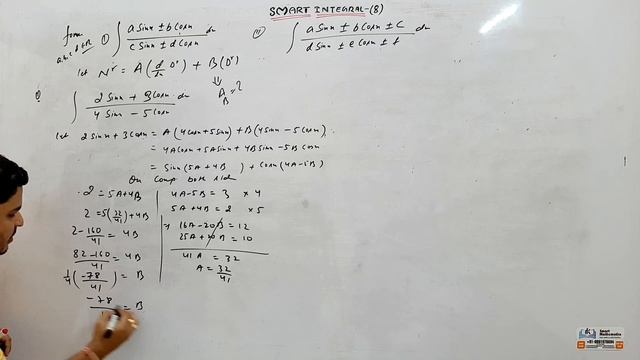 SMART INTEGRAL-(8)
form
a,b,c,d∈R
① ∫ (a Sinx ± b Cosx)/(c Sinx ± d Cosx) dx
② ∫ (a Sinx ± b Cosx ± C)/(d Sinx ± e Cosx ± f) dx
let Nʳ = A(d/dx Dʳ) + B(Dʳ)
⇓
A, B = ?
① ∫ (2 Sinx + 3 Cosx)/(4 Sinx - 5 Cosx) dx
let 2 Sinx + 3 Cosx = A(4 Cosx + 5 Sinx) + B(4 Sinx - 5 Cosx)
= 4A Cosx + 5A Sinx + 4B Sinx - 5B Cosx
= Sinx(5A+4B) + Cosx(4A-5B)
On Comp both side
2 = 5A+4B
2 = 5(32/41) + 4B
2 - 160/41 = 4B
(82-160)/41 = 4B
1/4(-78/41) = B
-78 = B
4A-5B = 3 × 4
5A+4B = 2 × 5
⇒ 16A-20B = 12
25A+20B = 10
41A = 32
A = 32/41
Smart Mathematics